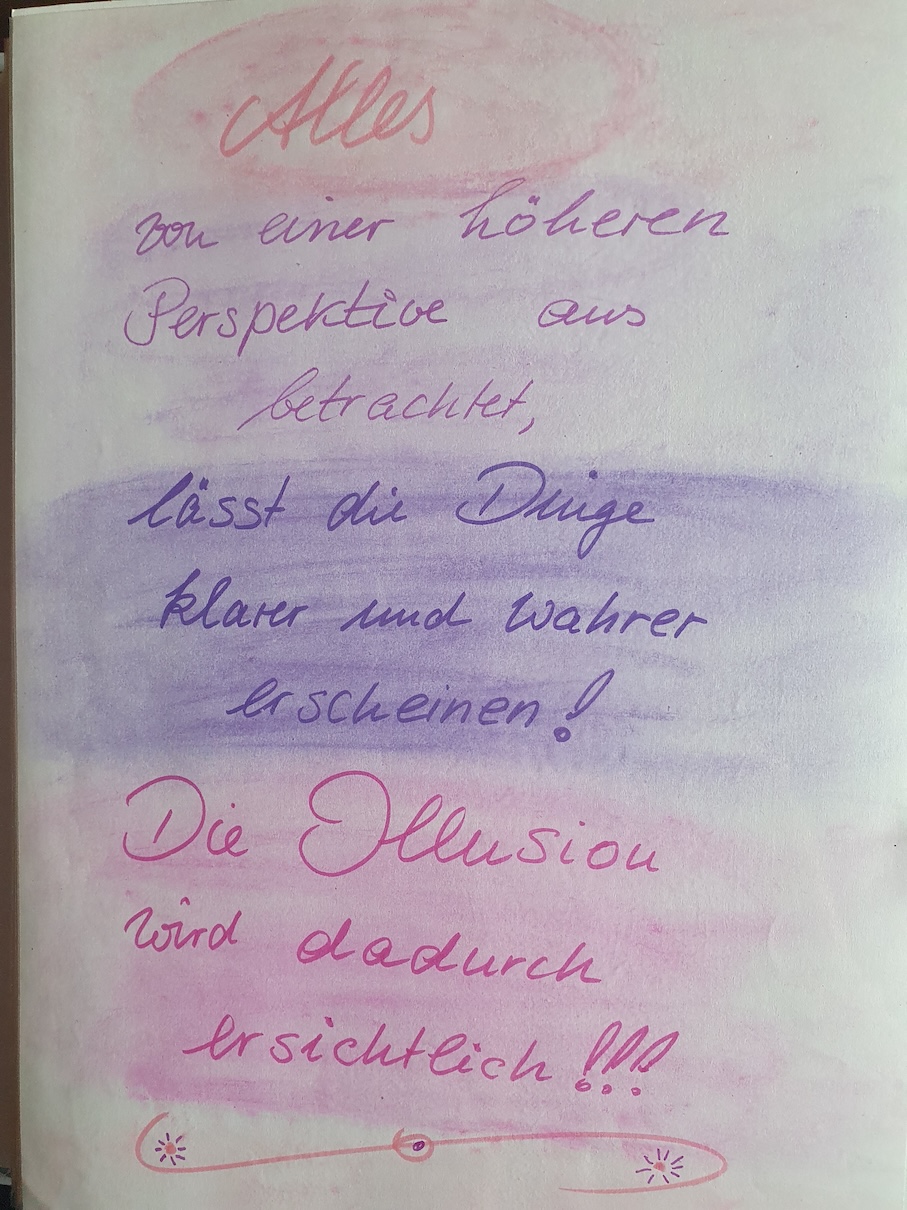 Alles
von einer höheren
Perspektive aus
betrachtet,
lässt die Dinge
klarer und wahrer
erscheinen!
Die Illusion
wird dadurch
ersichtlich!!!